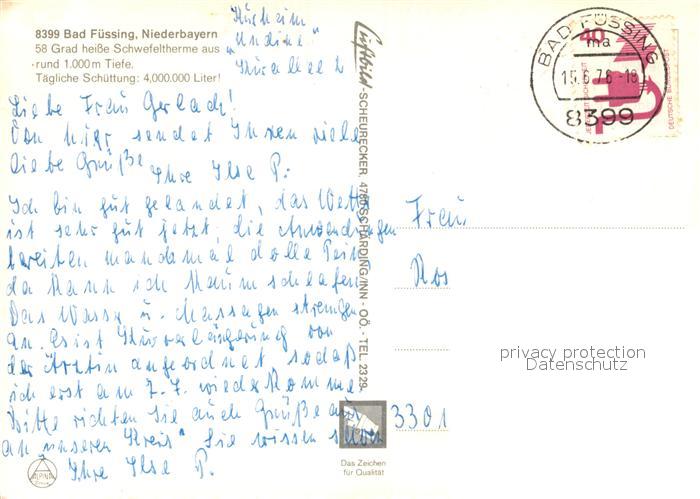 8399 Bad Füssing, Niederbayern
58 Grad heiße Schwefeltherme aus
rund 1.000 m Tiefe.
Tägliche Schüttung: 4,000.000 Liter!
Kurheim
"Undine"
Kurallee 2
Liebe Frau Gerlach!
Von hier sendet Ihnen viele
liebe Grüße
Ihre Ilse P.
Ich bin gut gelandet, das Wetter
ist sehr gut jetzt, die Anwendungen
bereiten manchmal dolle Pein
da kann ich kaum schlafen
Das Wasser u. Massagen strengen
an. Es ist Kurverlängerung von
der Ärztin angeordnet sodaß
ich erst am 7.7. wiederkomme
Bitte richten Sie auch Grüße aus
an unseren "Kreis" Sie wissen schon
Ihre Ilse P.
Luftbild-SCHEURECKER, 4780 SCHÄRDING/INN - OÖ. - TEL. 2329
BAD FÜSSING
ma
15.6.76-18
8399
40
DEUTSCHE BUNDESPOST
Frau
Ros
3301
privacy protection
Datenschutz
Das Zeichen
für Qualität
ALPINA